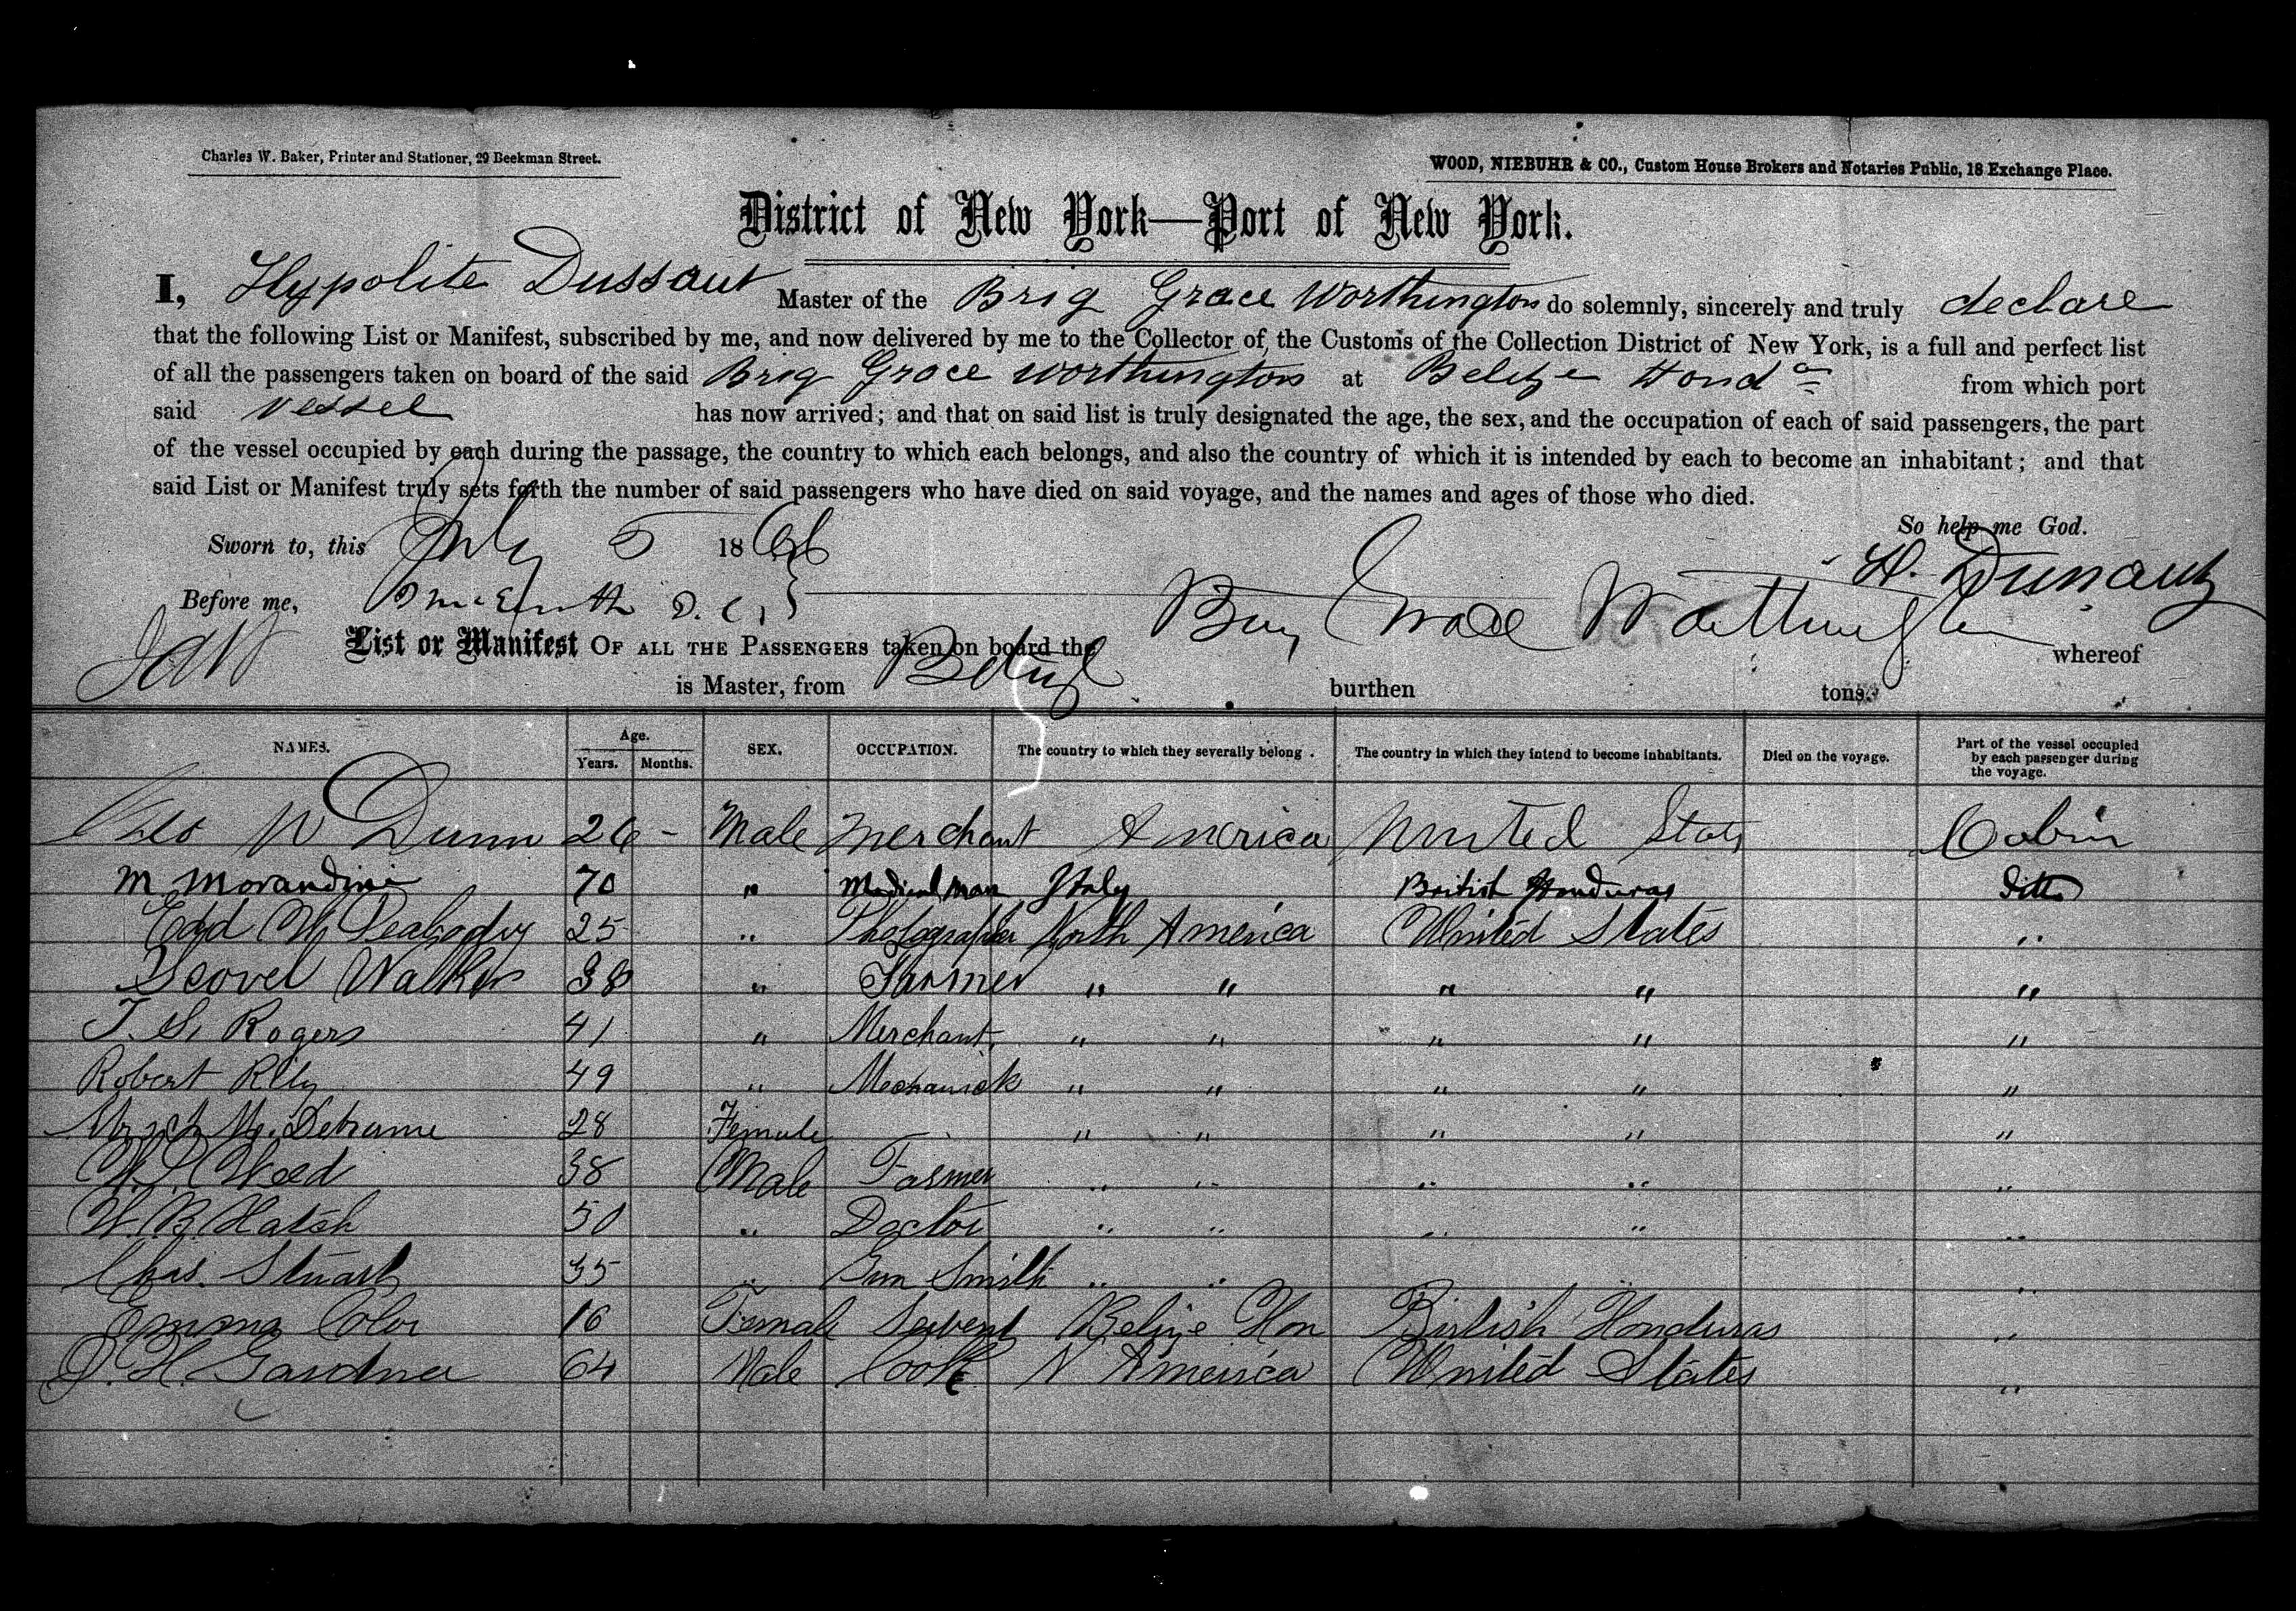 Charles W. Baker, Printer and Stationer, 29 Beekman Street.
WOOD, NIEBUHR & CO., Custom House Brokers and Notaries Public, 18 Exchange Place.
District of New York—Port of New York.
I, Hypolite Dussaut Master of the Brig Grace Worthington do solemnly, sincerely and truly declare
that the following List or Manifest, subscribed by me, and now delivered by me to the Collector of the Customs of the Collection District of New York, is a full and perfect list
of all the passengers taken on board of the said Brig Grace Worthington at Belize Hond^as from which port
said vessel has now arrived; and that on said list is truly designated the age, the sex, and the occupation of each of said passengers, the part
of the vessel occupied by each during the passage, the country to which each belongs, and also the country of which it is intended by each to become an inhabitant; and that
said List or Manifest truly sets forth the number of said passengers who have died on said voyage, and the names and ages of those who died.
So help me God.
Sworn to, this July 5 1866
H. Dussaut
Before me, D.C.
List or Manifest OF ALL THE PASSENGERS taken on board the Brig Grace Worthington whereof
is Master, from Belize burthen tons.
NAMES. Age. Years. Months. SEX. OCCUPATION. The country to which they severally belong. The country in which they intend to become inhabitants. Died on the voyage. Part of the vessel occupied by each passenger during the voyage.
Geo W Dunn 26 - Male Merchant America United States Cabin
M Morandini 70 " Medical Man Italy British Honduras ditto
Edd W Peabody 25 " Photographer North America United States "
Scovel Walker 38 " Farmer " " " " "
T. S. Rogers 41 " Merchant " " " " "
Robert Rily 49 " Mechanick " " " " "
28 Female - " " " " "
Weed 38 Male Farmer " " " " "
W. B. Hatch 50 " Doctor " " " " "
Chas. Stuart 35 " Gun Smith " " " "
Emma Color 16 Female Servent Belize Hon British Honduras "
J. H. Gardner 64 Male Cook N America United States "